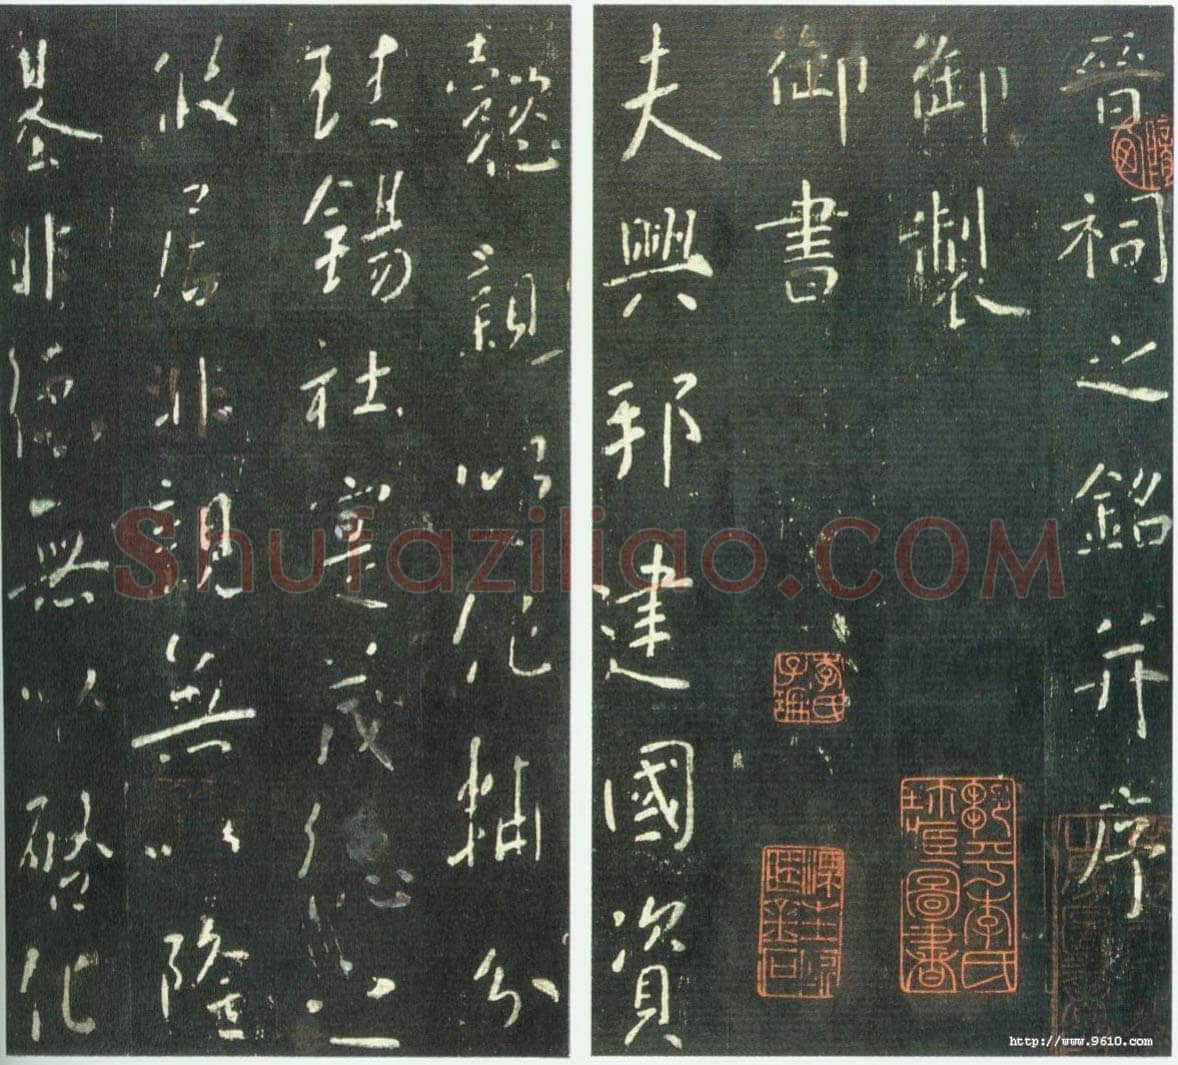 晉祠之銘并序
御製
御書
夫興邦建國資
懿親以作輔分
珪錫社寔茂德之
攸居非親無以隆
基非德無以啓化
Shufaziliao.COM
http://www.9610.com